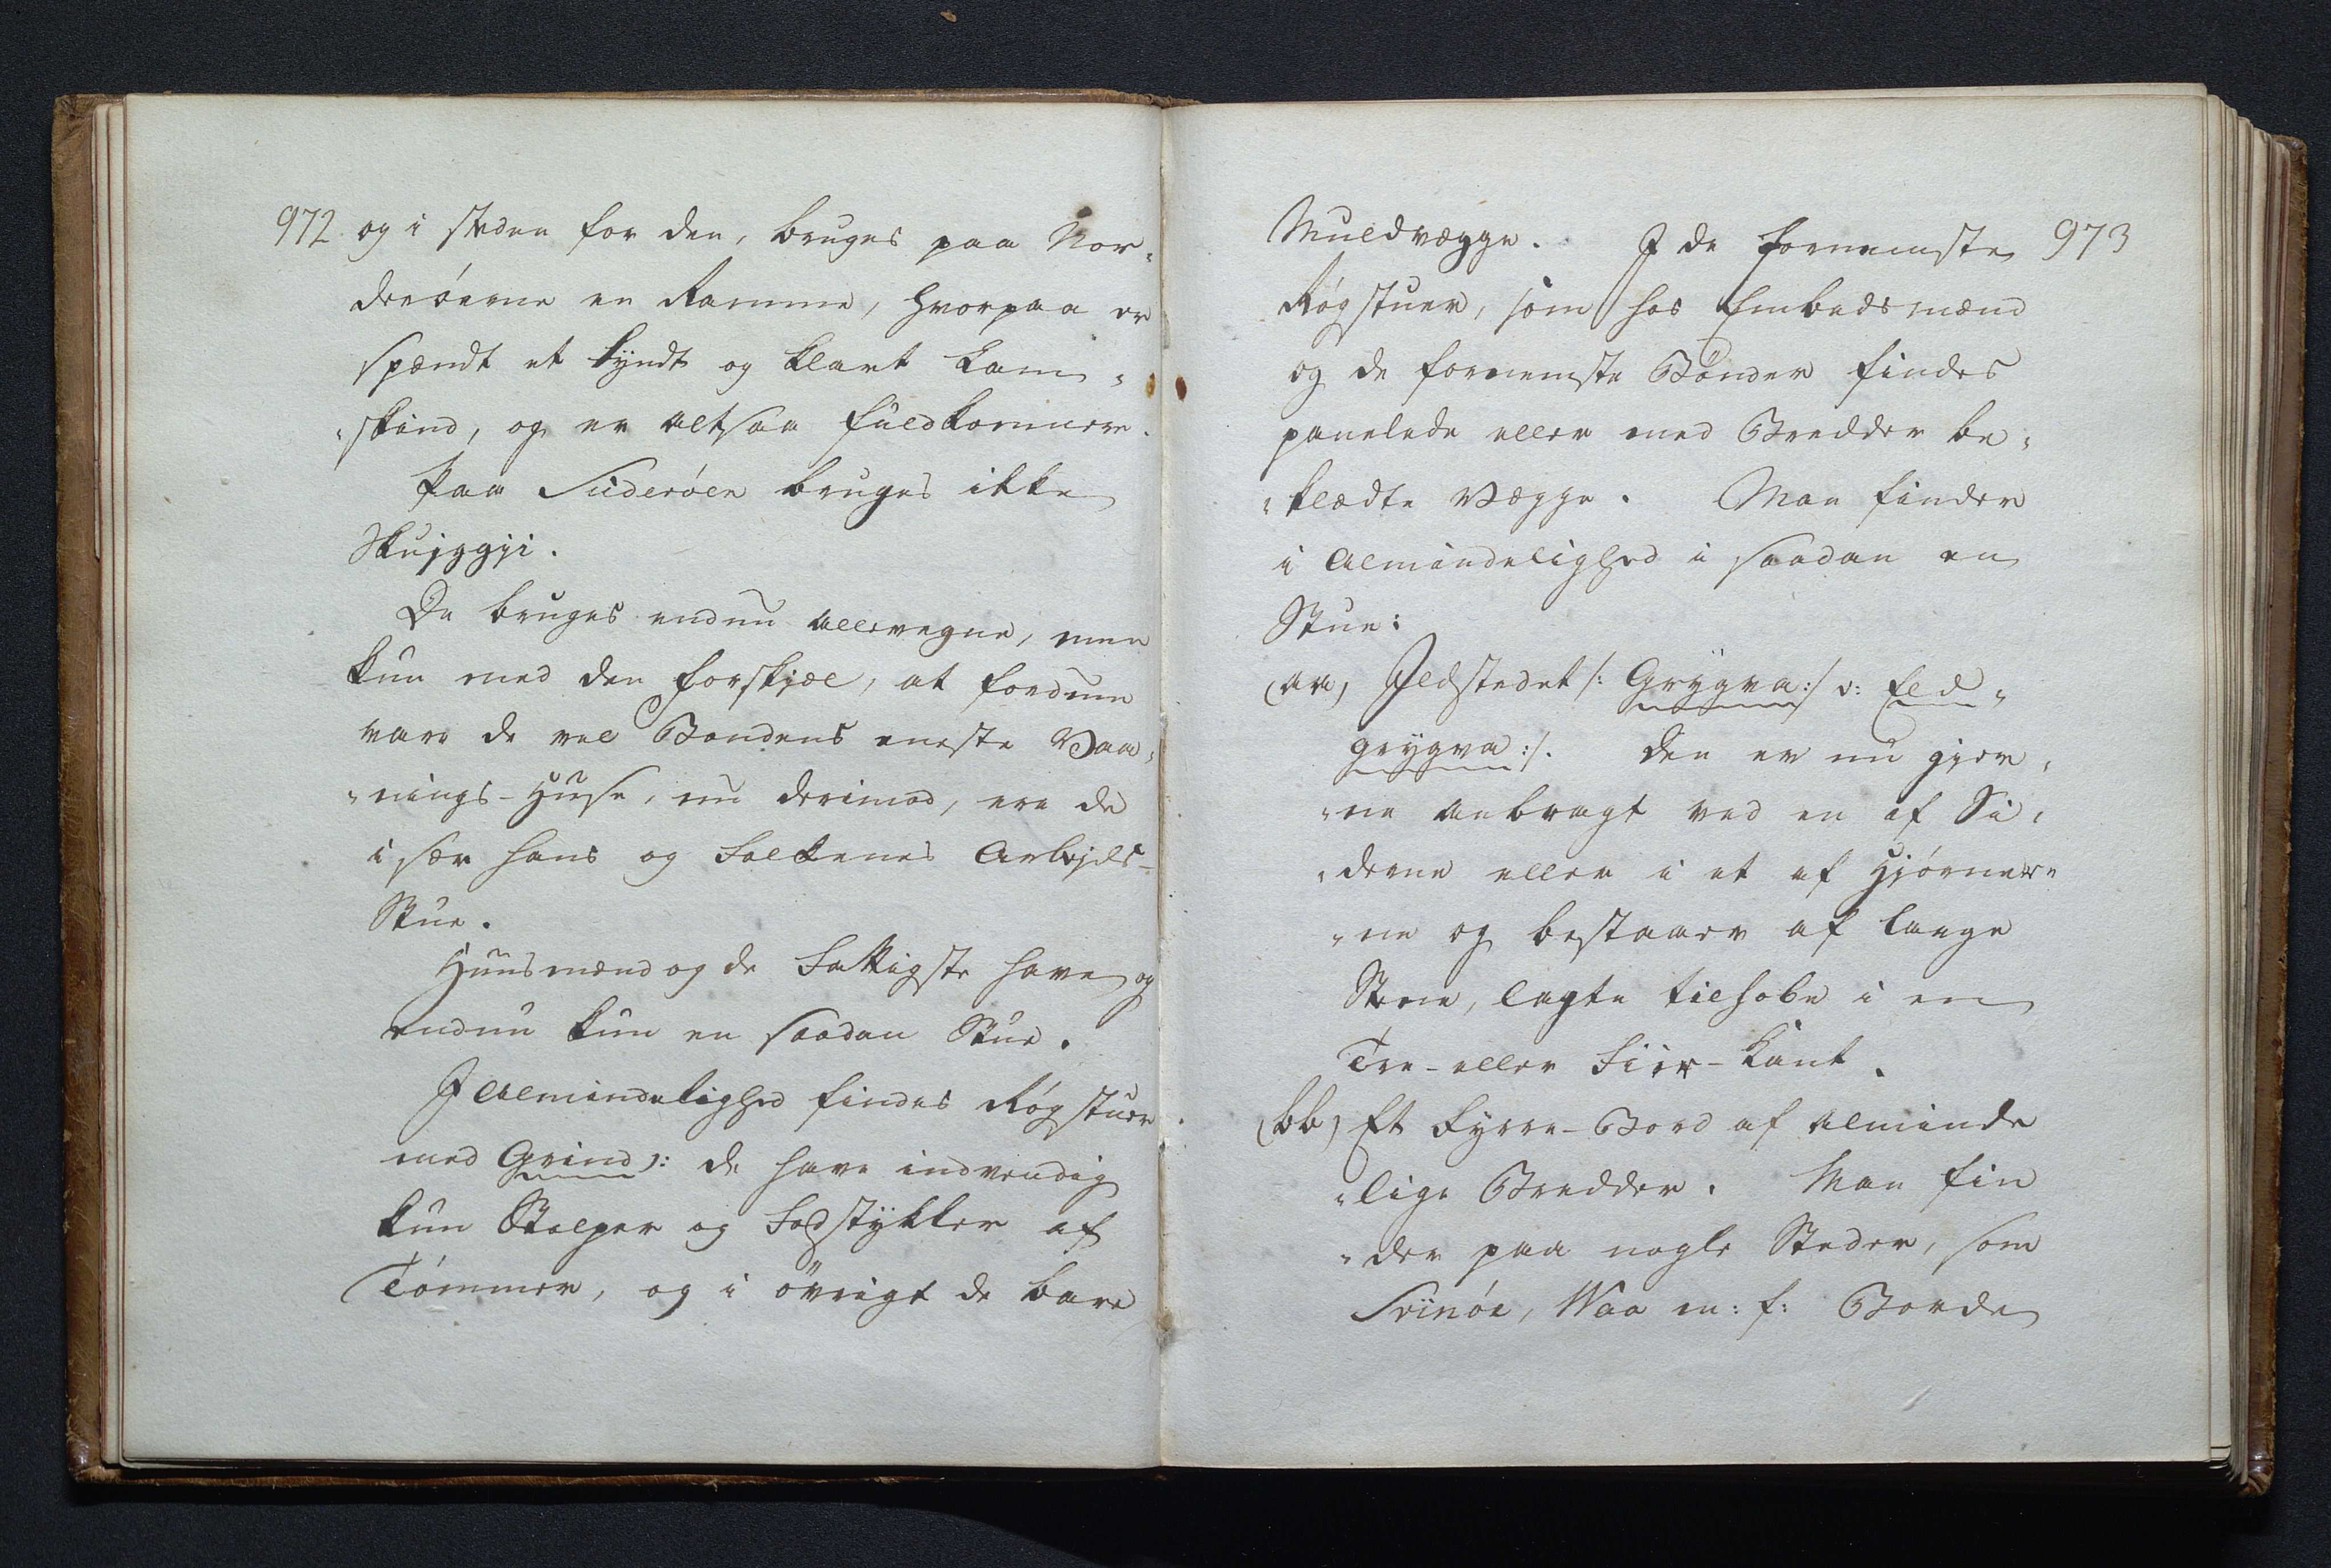 972 og i steden for den, bruges paa Nor„
derøerne en Ramme, hvorpaa er
spændt et tyndt og klart Lam„
„skind, og er altsaa fuldkomnere.
Paa Suderøen bruges ikke
Skujggji.
De bruges endnu allevegne, men
kun med den forskjæl, at fordum
vare de vel Bondens eneste Vaa„
„nings-Huse, nu derimod, ere de
i sær hans og Folkenes Arbejds-
Stue.
Huusmænd og de Fattigste have og
endnu kun en saadan Stue.
I Almindelighed findes Røgstuer
med Grind ɔ: de have indvendig
kun Stolper og Fodstykker af
Tømmer, og i øvrigt de bare
Muldvægge. I de fornemste 973
Røgstuer, som hos Embedsmænd
og de fornemste Bønder findes
panelede eller med Bredder be„
„klædte Vægge. Man finder
i Almindelighed i saadan en
Stue:
(aa) Ildstedet /: Grÿgva :/ ɔ: Eld„
grÿgva :/. Den er nu gjer„
„ne anbragt ved en af Si„
„derne eller i et af Hjørner„
„ne og bestaaer af lange
Stene, lagte tilhobe i en
Tre- eller Fiir-Kant.
(bb) Et Fyrre-Bord af alminde
„lige Bredder. Man fin
„der paa nogle Steder, som
Sviinøe, Waa m: f: Borde